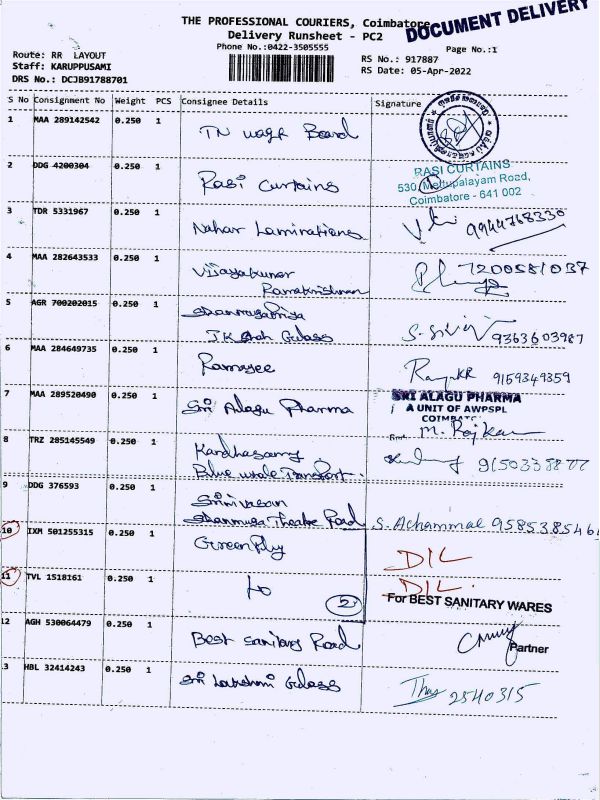 THE PROFESSIONAL COURIERS, Coimbatore
DOCUMENT DELIVERY
Delivery Runsheet - PC2
Phone No.:0422-3505555
Page No.:1
Route: RR LAYOUT
RS No.: 917887
Staff: KARUPPUSAMI
RS Date: 05-Apr-2022
DRS No.: DCJB91788701
S No Consignment No Weight PCS Consignee Details Signature
1 MAA 289142542 0.250 1
TN waqf Board
2 DDG 4200304 0.250 1
Rasi Curtains
RASI CURTAINS
530, Mettupalayam Road,
Coimbatore - 641 002
3 TDR 5331967 0.250 1
Nahar Laminations
9944768330
4 MAA 282643533 0.250 1
Vijayakumar
Ramakrishnan
7200581037
5 AGR 700202015 0.250 1
Shanmugapriya
Glass
9363603987
6 MAA 284649735 0.250 1
Ramajee
9159349359
7 MAA 289520490 0.250 1
Sri Alagu Pharma
SRI ALAGU PHARMA
A UNIT OF AWPSPL
M. Rajkumar
8 TRZ 285145549 0.250 1
Kandhasamy
Transport
9 DDG 376593 0.250 1
Srinivasan
Shanmuga Theatre Road
S. Achammal
10 IXM 501255315 0.250 1
Green Ply
DIL
11 TVL 1518161 0.250 1
2
DIL
For BEST SANITARY WARES
12 AGH 530064479 0.250 1
Best Sanitary Road
Partner
13 HBL 32414243 0.250 1
Sri Lakshmi Glass
2540315